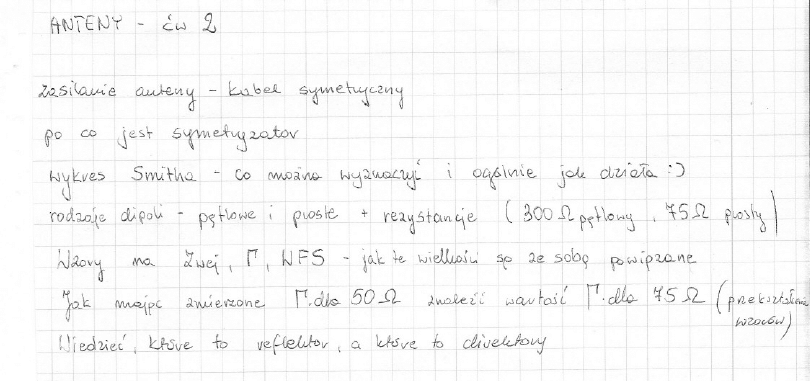 ANTENY - ćw 2
zasilanie anteny - kabel symetryczny
po co jest symetryzator
wykres Smitha - co można wyznaczyć i ogólnie jak działa :)
rodzaje dipoli - pętlowe i proste + rezystancje (300 Ω pętlowy, 75 Ω prosty)
Wzory na Zwej, Γ, WFS - jak te wielkości są ze sobą powiązane
Jak mając zmierzone Γ dla 50 Ω znaleźć wartość Γ dla 75 Ω (przekształcenie wzorów)
Wiedzieć, które to reflektor, a które to direktory